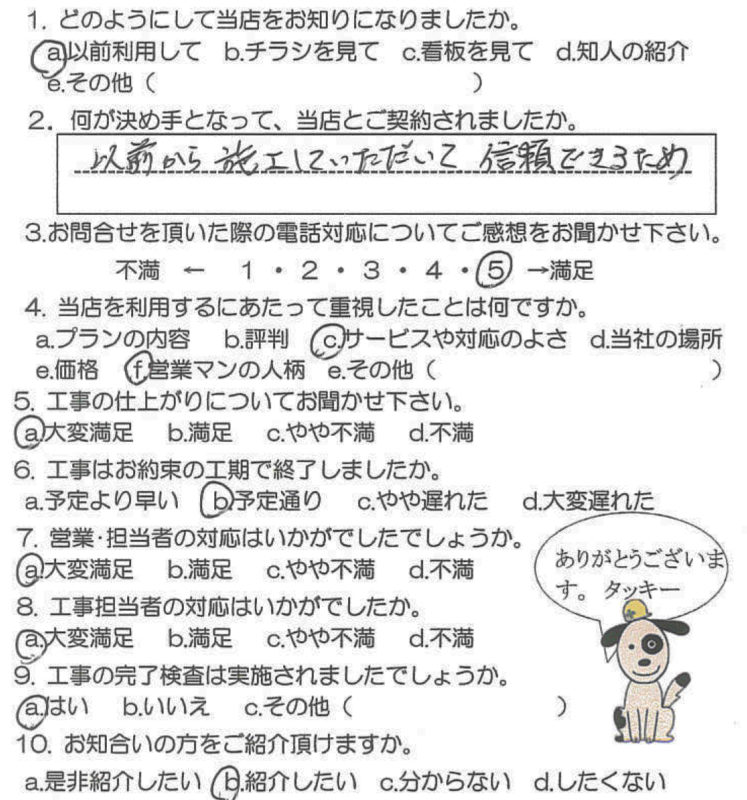 1. どのようにして当店をお知りになりましたか。
a.以前利用して b.チラシを見て c.看板を見て d.知人の紹介
e.その他（　　　　　　　　　　　　）
2. 何が決め手となって、当店とご契約されましたか。
以前から施工していただいて 信頼できるため
3.お問合せを頂いた際の電話対応についてご感想をお聞かせ下さい。
不満 ← 1・2・3・4・5 →満足
4. 当店を利用するにあたって重視したことは何ですか。
a.プランの内容 b.評判 c.サービスや対応のよさ d.当社の場所
e.価格 f.営業マンの人柄 e.その他（　　　　　　　　　　）
5. 工事の仕上がりについてお聞かせ下さい。
a.大変満足 b.満足 c.やや不満 d.不満
6. 工事はお約束の工期で終了しましたか。
a.予定より早い b.予定通り c.やや遅れた d.大変遅れた
7. 営業・担当者の対応はいかがでしたでしょうか。
a.大変満足 b.満足 c.やや不満 d.不満
ありがとうございま
す。 タッキー
8. 工事担当者の対応はいかがでしたか。
a.大変満足 b.満足 c.やや不満 d.不満
9. 工事の完了検査は実施されましたでしょうか。
a.はい b.いいえ c.その他（　　　　　　　　）
10. お知合いの方をご紹介頂けますか。
a.是非紹介したい b.紹介したい c.分からない d.したくない